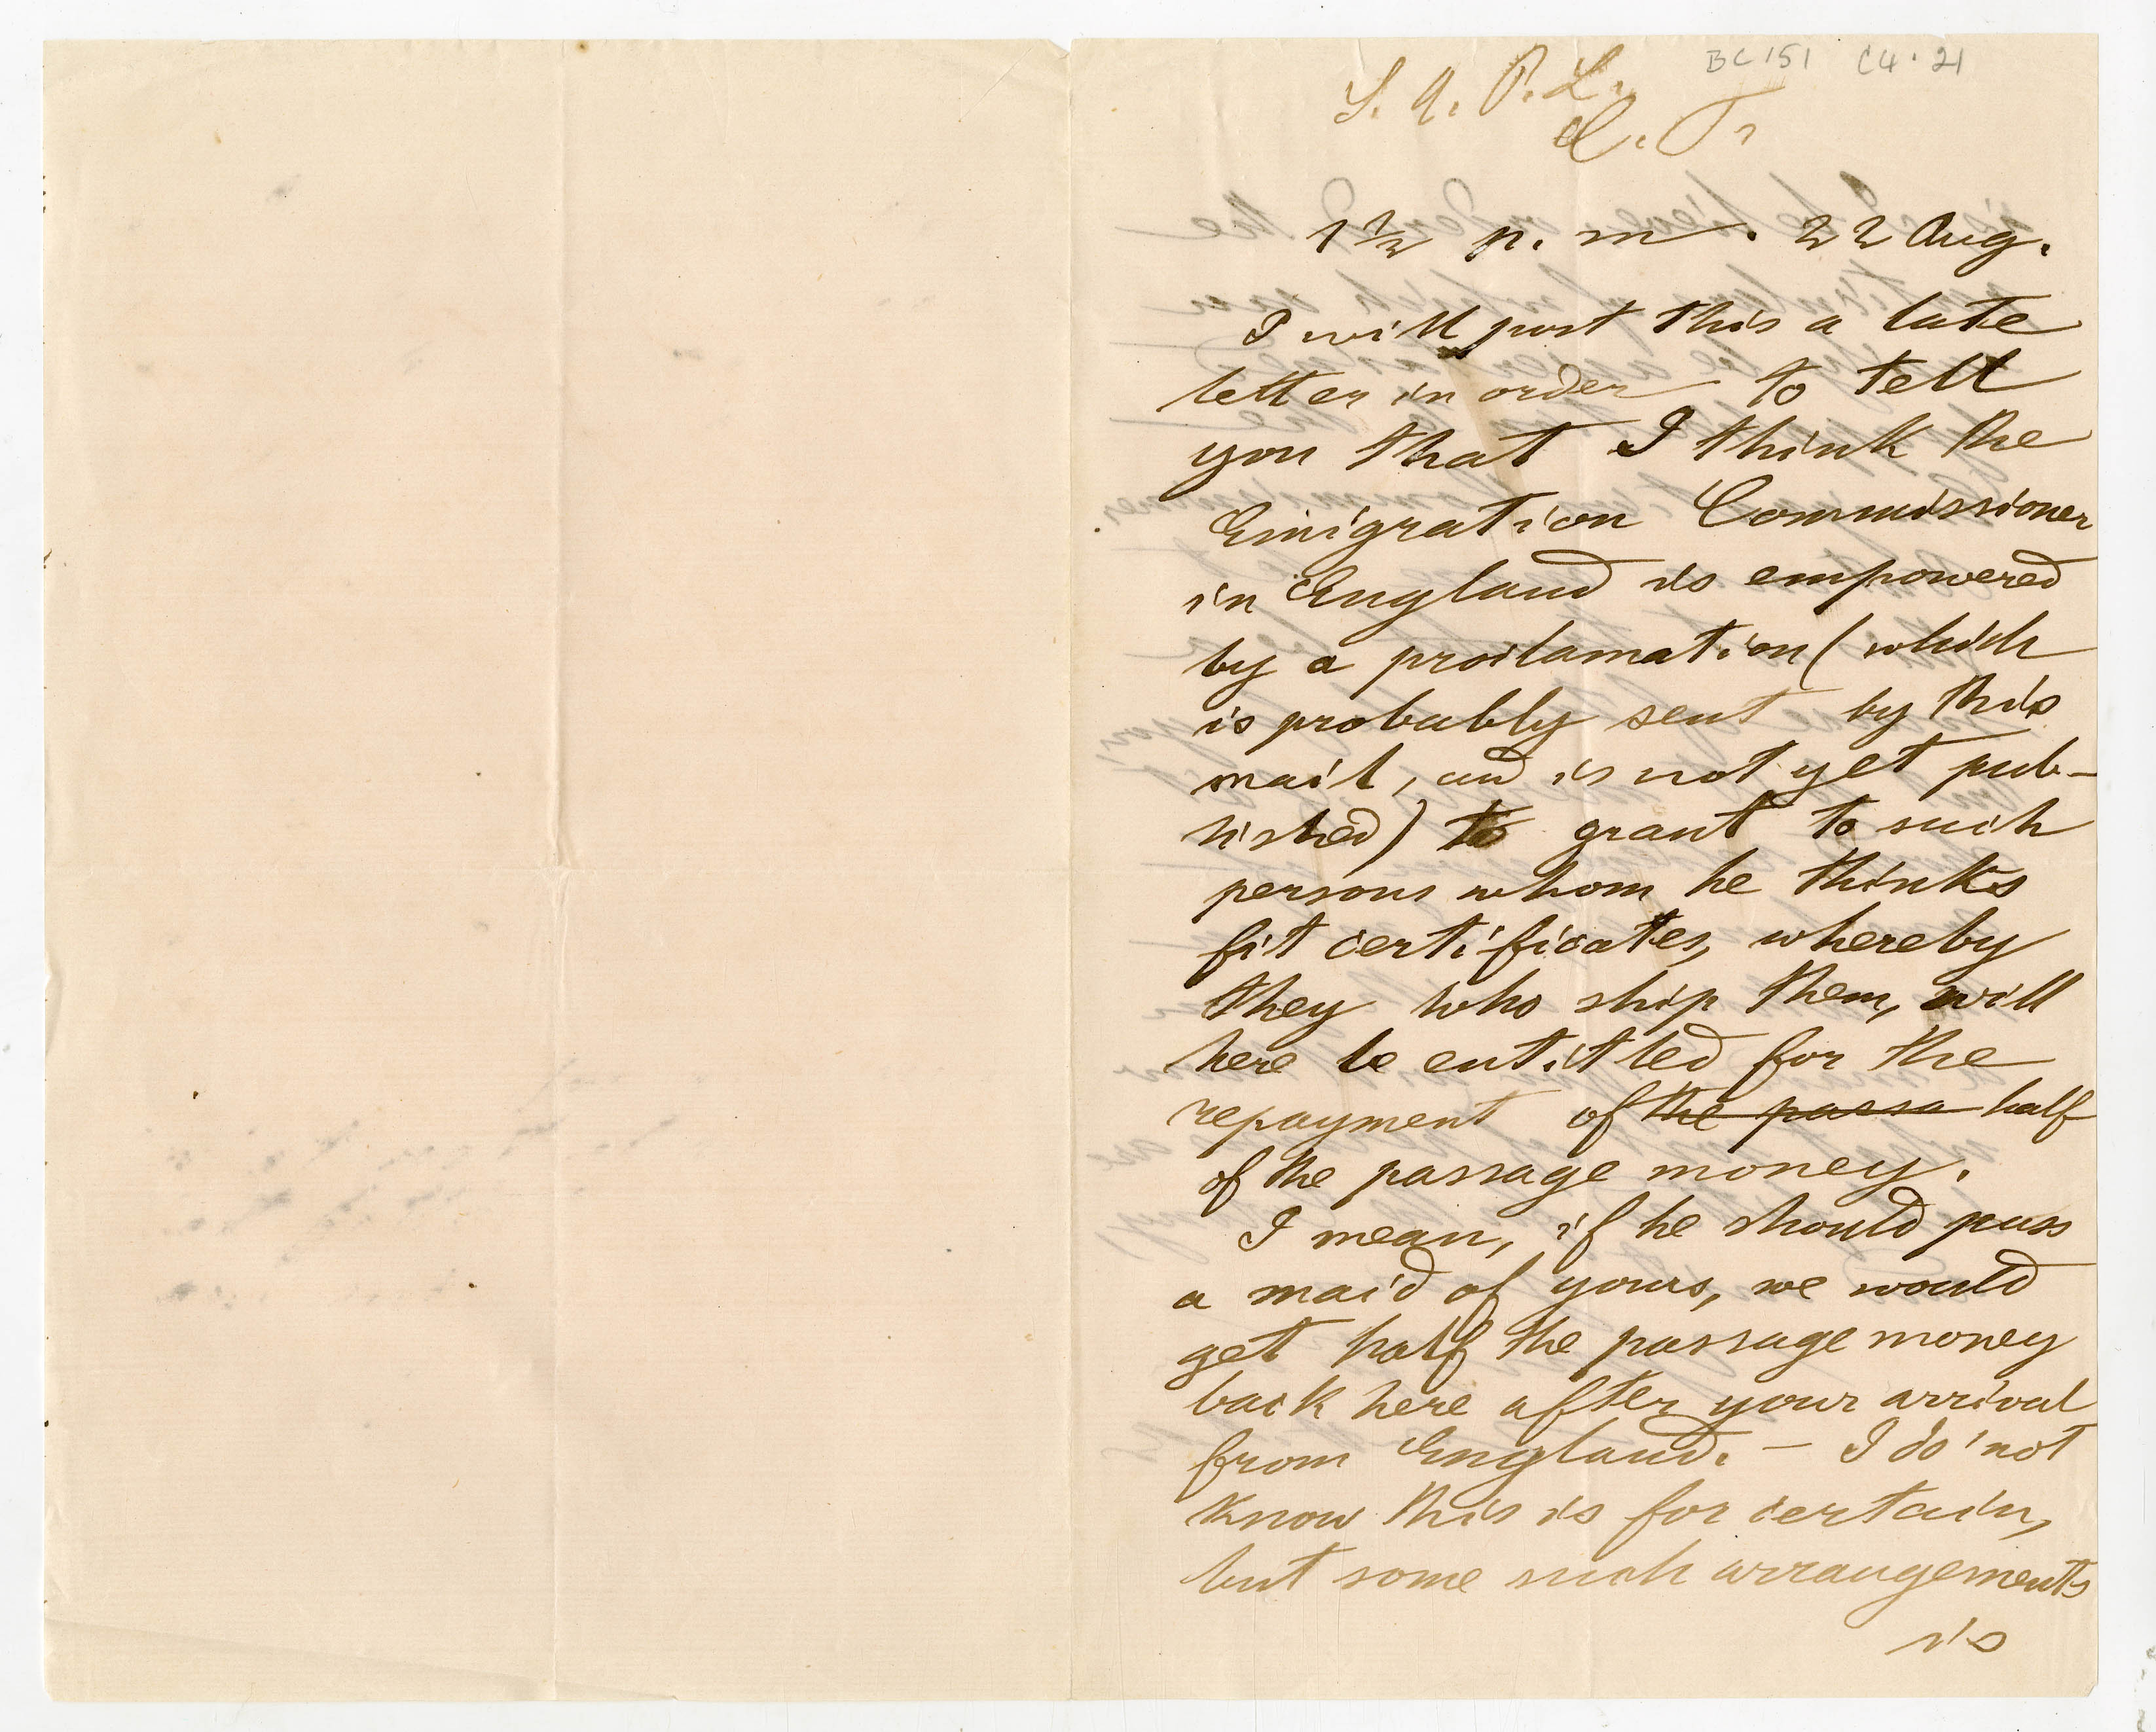 BC 151 C4.21
S. A. P. L.
C. T.
1½ p. m. 22 Aug.
I will post this a late
letter in order to tell
you that I think the
Emigration Commissioner
in England is empowered
by a proclamation (which
is probably sent by this
mail, and is not yet pub-
lished) to grant to such
persons whom he thinks
fit certificates, whereby
they who ship them, will
here be entitled for the
repayment of the passa half
of the passage money.
I mean, if he should pass
a maid of yours, we would
get half the passage money
back here after your arrival
from England. — I do not
know this is for certain,
but some such arrangements
is